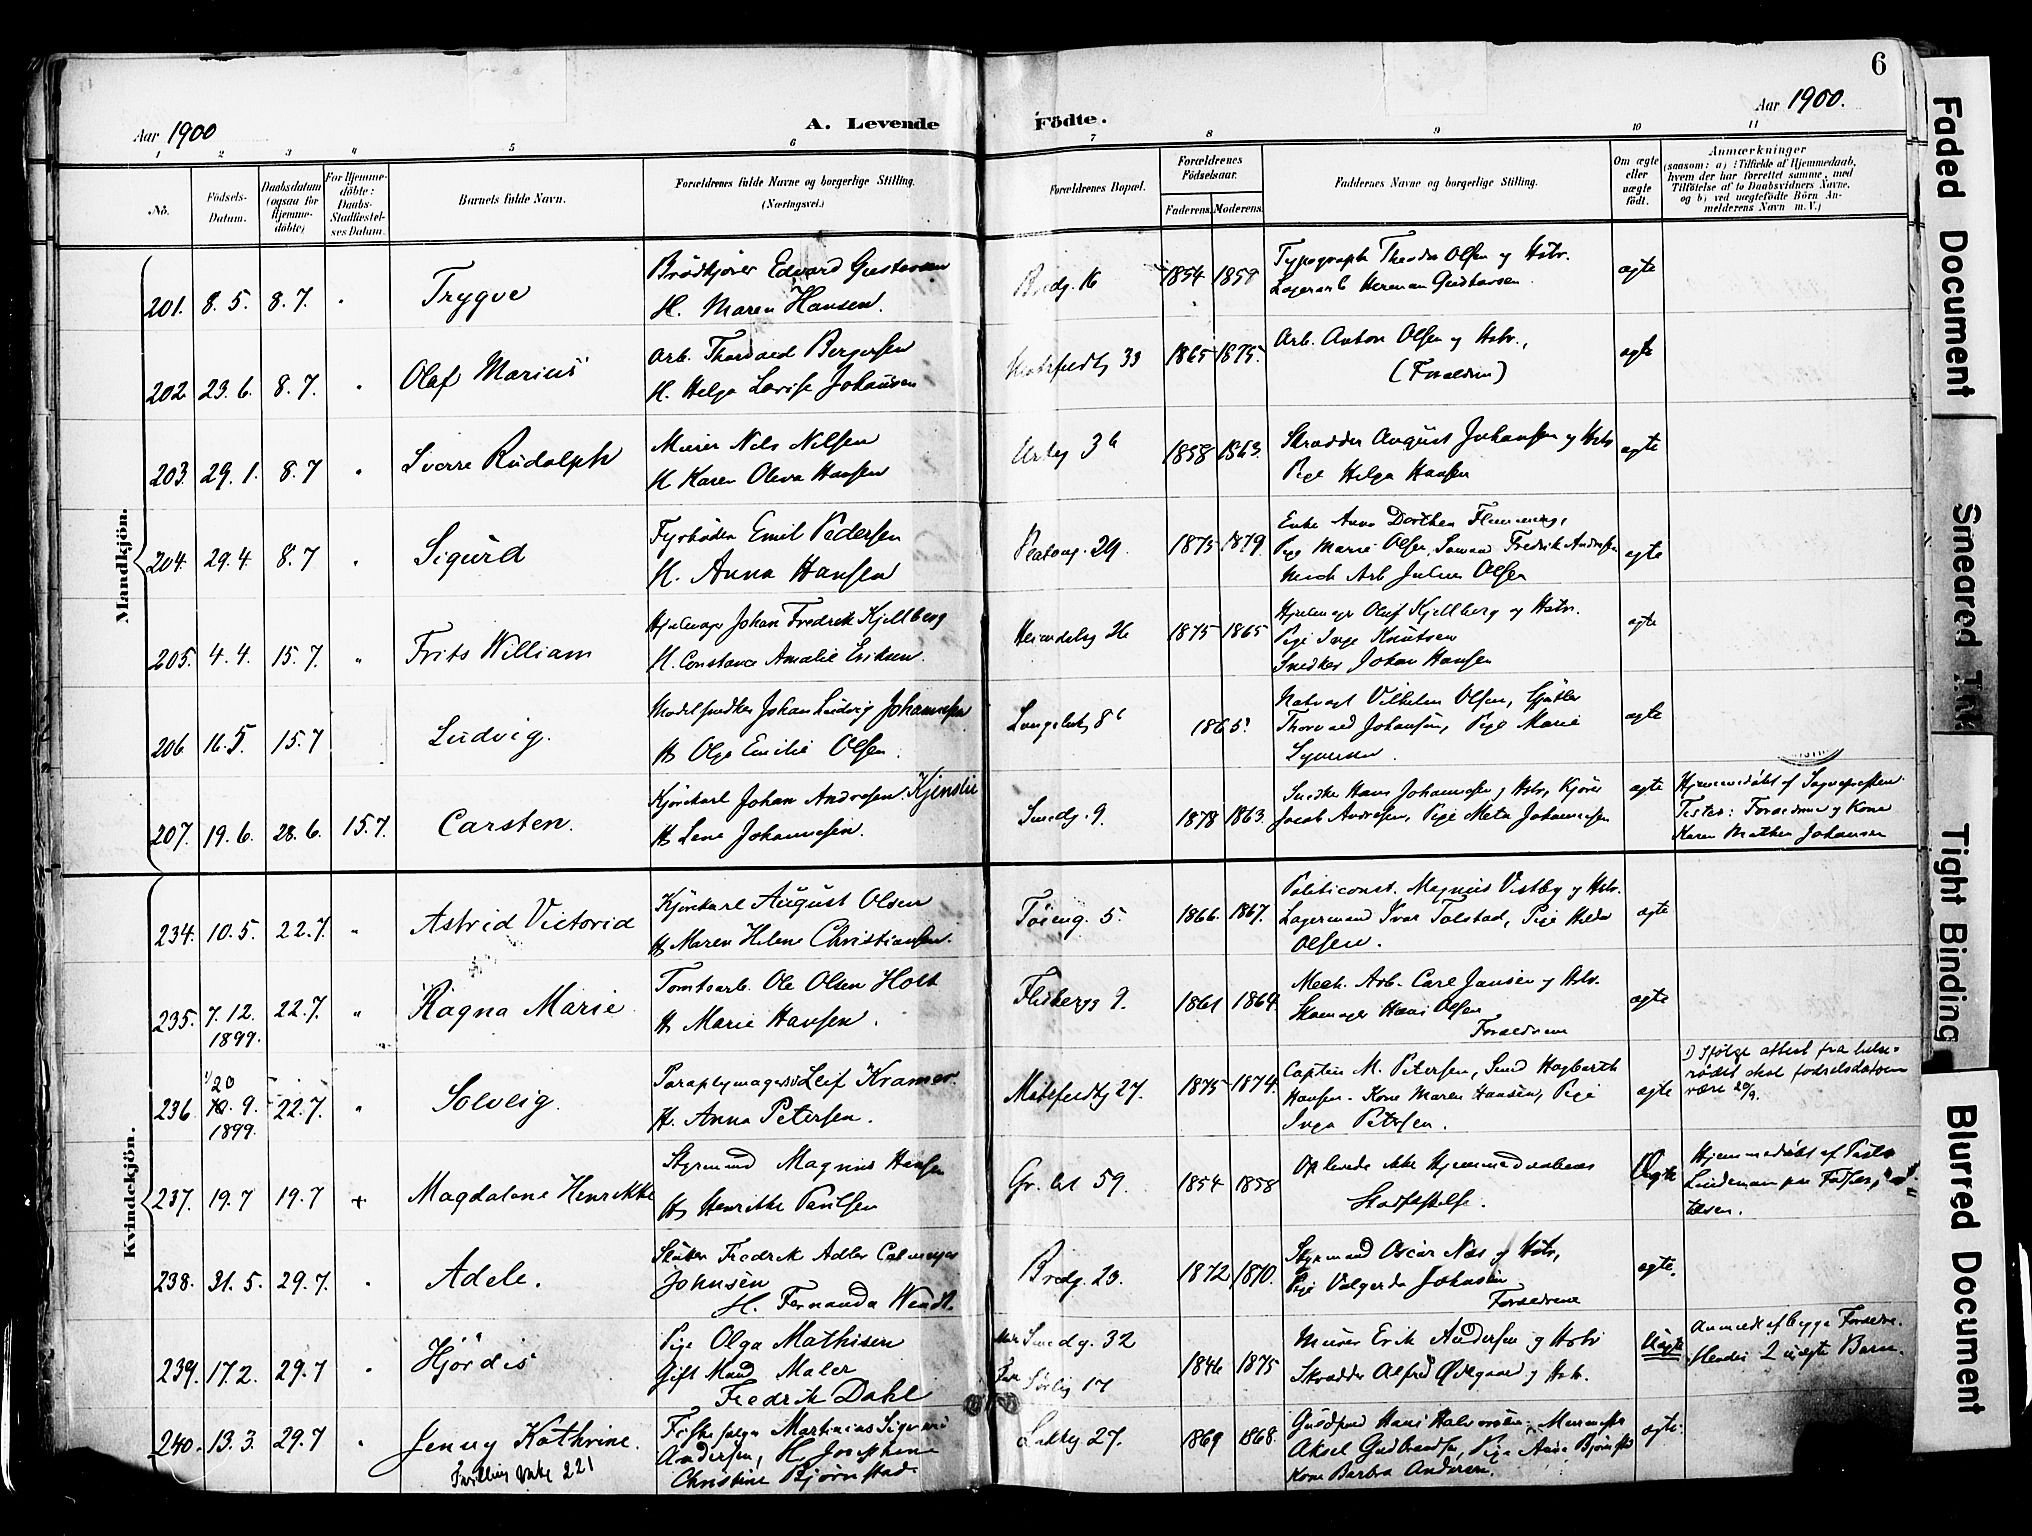 6
Aar 1900
A. Levende Födte.
Aar 1900.
1 2 3 4 5 6 7 8 9 10 11
No.
Födsels-Datum.
Daabsdatum (ogsaa for Hjemme-döbte)
For Hjemme-döbte: Daabs-Stadfæstel-ses Datum.
Barnets fulde Navn.
Forældrenes fulde Navne og borgerlige Stilling.
(Næringsvei.)
Forældrenes Bopæl.
Forældrenes Födselsaar.
Faderens. Moderens.
Faddernes Navne og borgerlige Stilling.
Om ægte eller uægte födt.
Anmærkninger
(saasom: a) i Tilfælde af Hjemmedaab,
hvem der har forrettet samme, med
Tilföielse af to Daabsvidners Navne,
og b) ved uægtefödte Börn An-
melderens Navn m. V.)
Mandkjön.
201. 8. 5. 8. 7. " Trygve
Brödkjörer Edvard Gustavsen
H. Maren Hansen.
Bredg. 16 1854 1859
Typograph Theodor Olsen og Hstr.
Lagerarb Herman Gustavsen
ægte
202 23. 6. 8. 7. " Olaf Marius
Arb. Thorvald Bergersen
H. Helga Lovise Johansen
33 1865 1875.
Arb. Anton Olsen og Hstr.,
(Forældrene)
ægte
203. 29. 1. 8. 7 " Sverre Rudolph
Murer Nils Nilsen
H. Karen Oleva Hansen
1858 1863.
Skrædder August Johansen og Hstr
Pige Helga Hansen
ægte
204. 29. 4. 8. 7 " Sigurd
Fyrböder Emil Pedersen
H. Anna Hansen
29. 1875 1879
Enke Anna Dorthea Flemming,
Pige Marie Olsen, Sömand Fredrik Andersen
Mech Arb Julius Olsen
ægte
205. 4. 4. 15. 7. " Frits William
Hjulmager Johan Fredrik Kjellberg
H. Constance Amalie Eriksen.
26 1875 1865
Hjulmager Oluf Kjellberg og Hstr.
Pige Inga Knutsen
Snedker Johan Hansen
ægte
206 16. 5 15. 7 Ludvig.
Modelsnedker Johan Ludvig Johannesen
H Olga Emilie Olsen.
1865
Natvagt Vilhelm Olsen,
Thorvald Johansen, Pige Marie
Syversen
ægte
207. 19. 6. 28. 6. 15. 7. Carsten.
Kjörekarl Johan Andresen Kjenslie
H Lene Johannesen.
Smedg. 9. 1878 1863.
Snedker Hans Johannesen og Hstr, Kjörer
Jacob Andresen, Pige Meta Johannesen
ægte
Hjemmedöbt af Sognepresten
Testes: Forældrene og Kone
Karen Mathea Johansen
Kvindekjön.
234. 10. 5. 22. 7. " Astrid Victoria
Kjörekarl August Olsen
H Maren Helene Christiansen.
Töieng. 5 1866. 1867.
Politiconst. Magnus Vestby og Hstr.
Lagermand Ivar Tolstad, Pige Hilda
Olsen.
ægte
235. 7. 12. 22. 7. " Ragna Marie
1899.
Tomtearb. Ole Olsen Holt
H Marie Hansen.
9. 1861 1864.
Mech. Arb. Carl Jansen og Hstr.
Skomager Hans Olsen
Forældrene
ægte
236 1) 20. 9. 22. 7. " Solveig.
1899.
Paraplymagersv Leif Kramer.
H. Anna Petersen.
27. 1875 1874.
Captein M. Petersen, Smed Hagbarth
Hansen. Kone Maren Hansen, Pige
Inga Petersen.
ægte
1) Ifölge attest fra helse-
rådet skal fødselsdatoen
være 20/9.
237. 19. 7 19. 7 + Magdalene Henrikke
Styrmand Magnus Hansen
H Henrikke Paulsen
59. 1854 1858
Oplevede ikke Hjemmedaabens
Stadfæstelse.
Ægte
Hjemmedöbt af Pastor
Lindeman
238. 31. 5. 29. 7. " Adele.
Fredrik Adler Calmeyer
Johnsen
H. Fernanda Wendt.
Bredg. 23. 1872 1870.
Styrmand Oscar Næs og Hstr,
Pige Valgerda Johnsen
Forældrene
ægte.
239. 17. 2. 29. 7 " Hjördis
Pige Olga Mathisen
Gift Mand Maler
Fredrik Dahl
Smedg. 32
17
1846 1875
Murer Erik Andersen og Hstr
Skrædder Alfred Ødegaard og Hstr.
Uægte
Anmeldt af begge Forældre.
Hendes 2 uægte Barn.
240. 13. 3. 29. 7 " Jenny Kathrine.
Tvilling 221
Martinius Sigvard
Andersen, H. Josephine
Christine Bjørnstad
27. 1869 1868.
Guldsmed Hans Halvorsen, Murmester
Aksel Gudbrandsen, Pige Anna Bjørnstad
Kone Barbra Andersen.
ægte.
Faded Document
Smeared Ink
Tight Binding
Blurred Document